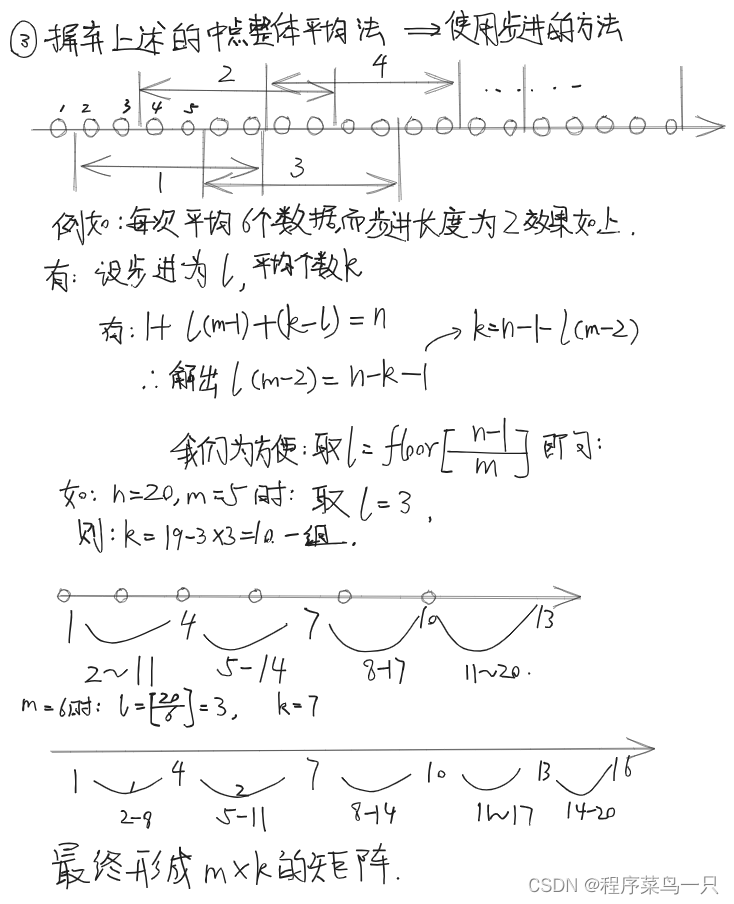 ③ 摒弃上述的中点整体平均法 ⇒ 使用步进的方法
2 4 ......-
1 2 3 4 5
1 3
例如:每次平均6个数据,而步进长度为2效果如上.
有: 设步进为l,平均个数k
有: 1+ l(m-1)+(k-l)=n → k=n-1-l(m-2)
∴ 解出 l(m-2)=n-k-1
我们为方便:取l=floor[(n-1)/m] 即可:
如: n=20,m=5时: 取 l=3,
则: k=19-3×3=10.一组.
1 4 7 10 13
2~11 5-14 8-17 11~20.
m=6时: l=[20/6]=3, k=7
1 4 7 10 13 16
1 2
2-8 5-11 8-14 11~17 14-20
最终形成 m×k的矩阵.
CSDN @程序菜鸟一只